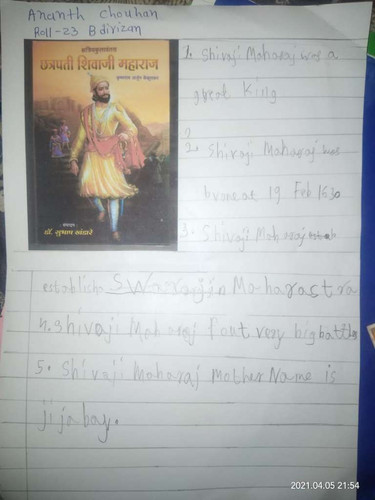 Ananth Chouhan
Roll-23 B divizan
छत्रपती शिवाजी महाराज
डॉ. सुभाष
1. Shivaji Maharaj was a
great King
2
2. Shivaji Maharaj was
19 Feb 1630
3. Shivaji Maharaj
establishe Swaraj in Maharastra
4. Shivaji Maharaj Fout very big battle
5. Shivaji Maharaj Mother Name is
jijabay.
2021.04.05 21:54